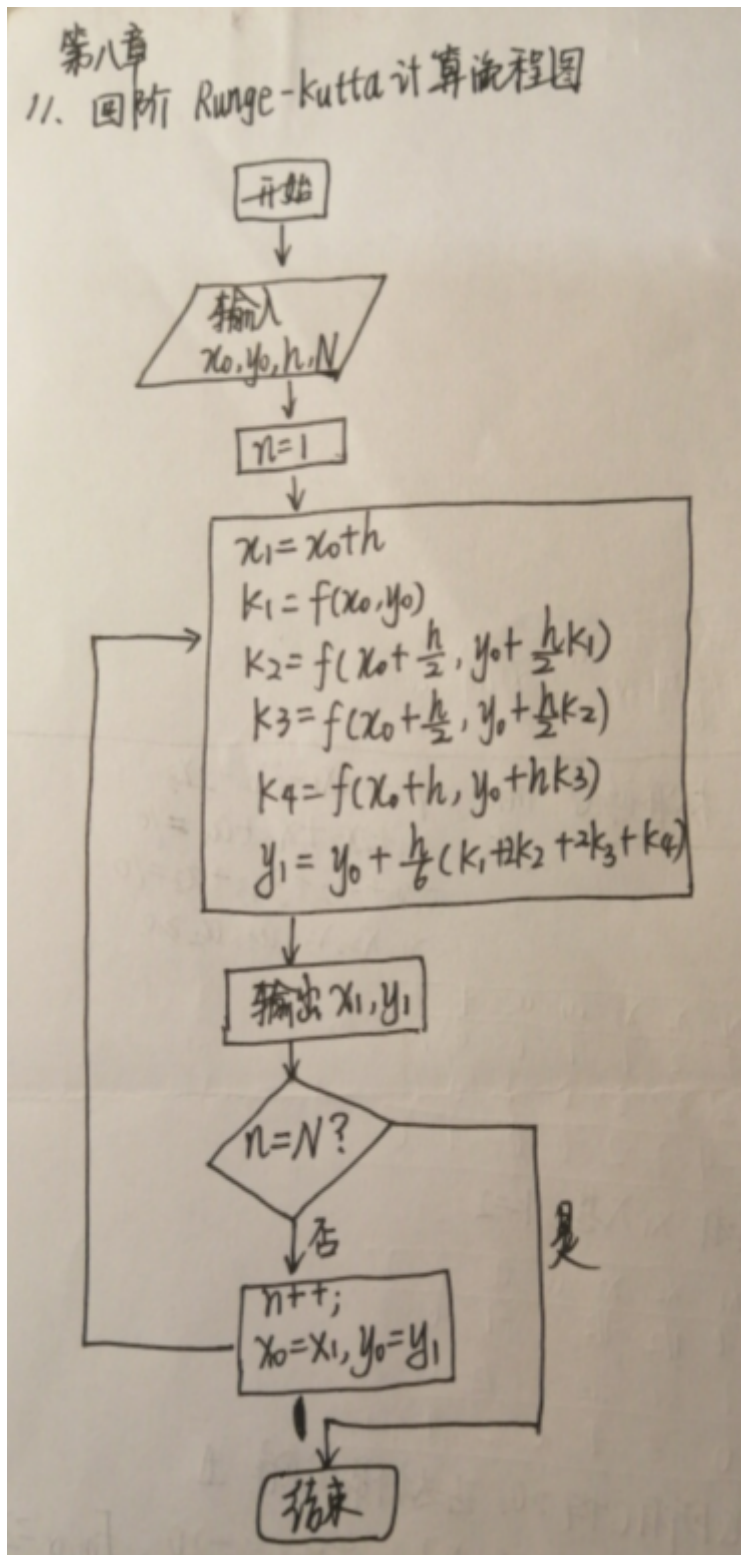 第八章
11. 四阶 Runge-Kutta 计算流程图
开始
输入
x0, y0, h, N
n=1
x1=x0+h
K1=f(x0,y0)
K2=f(x0+h/2, y0+h/2K1)
K3=f(x0+h/2, y0+h/2K2)
K4=f(x0+h, y0+hK3)
y1=y0+h/6(K1+2K2+2K3+K4)
输出 x1, y1
n=N?
否
是
n++;
x0=x1, y0=y1
结束